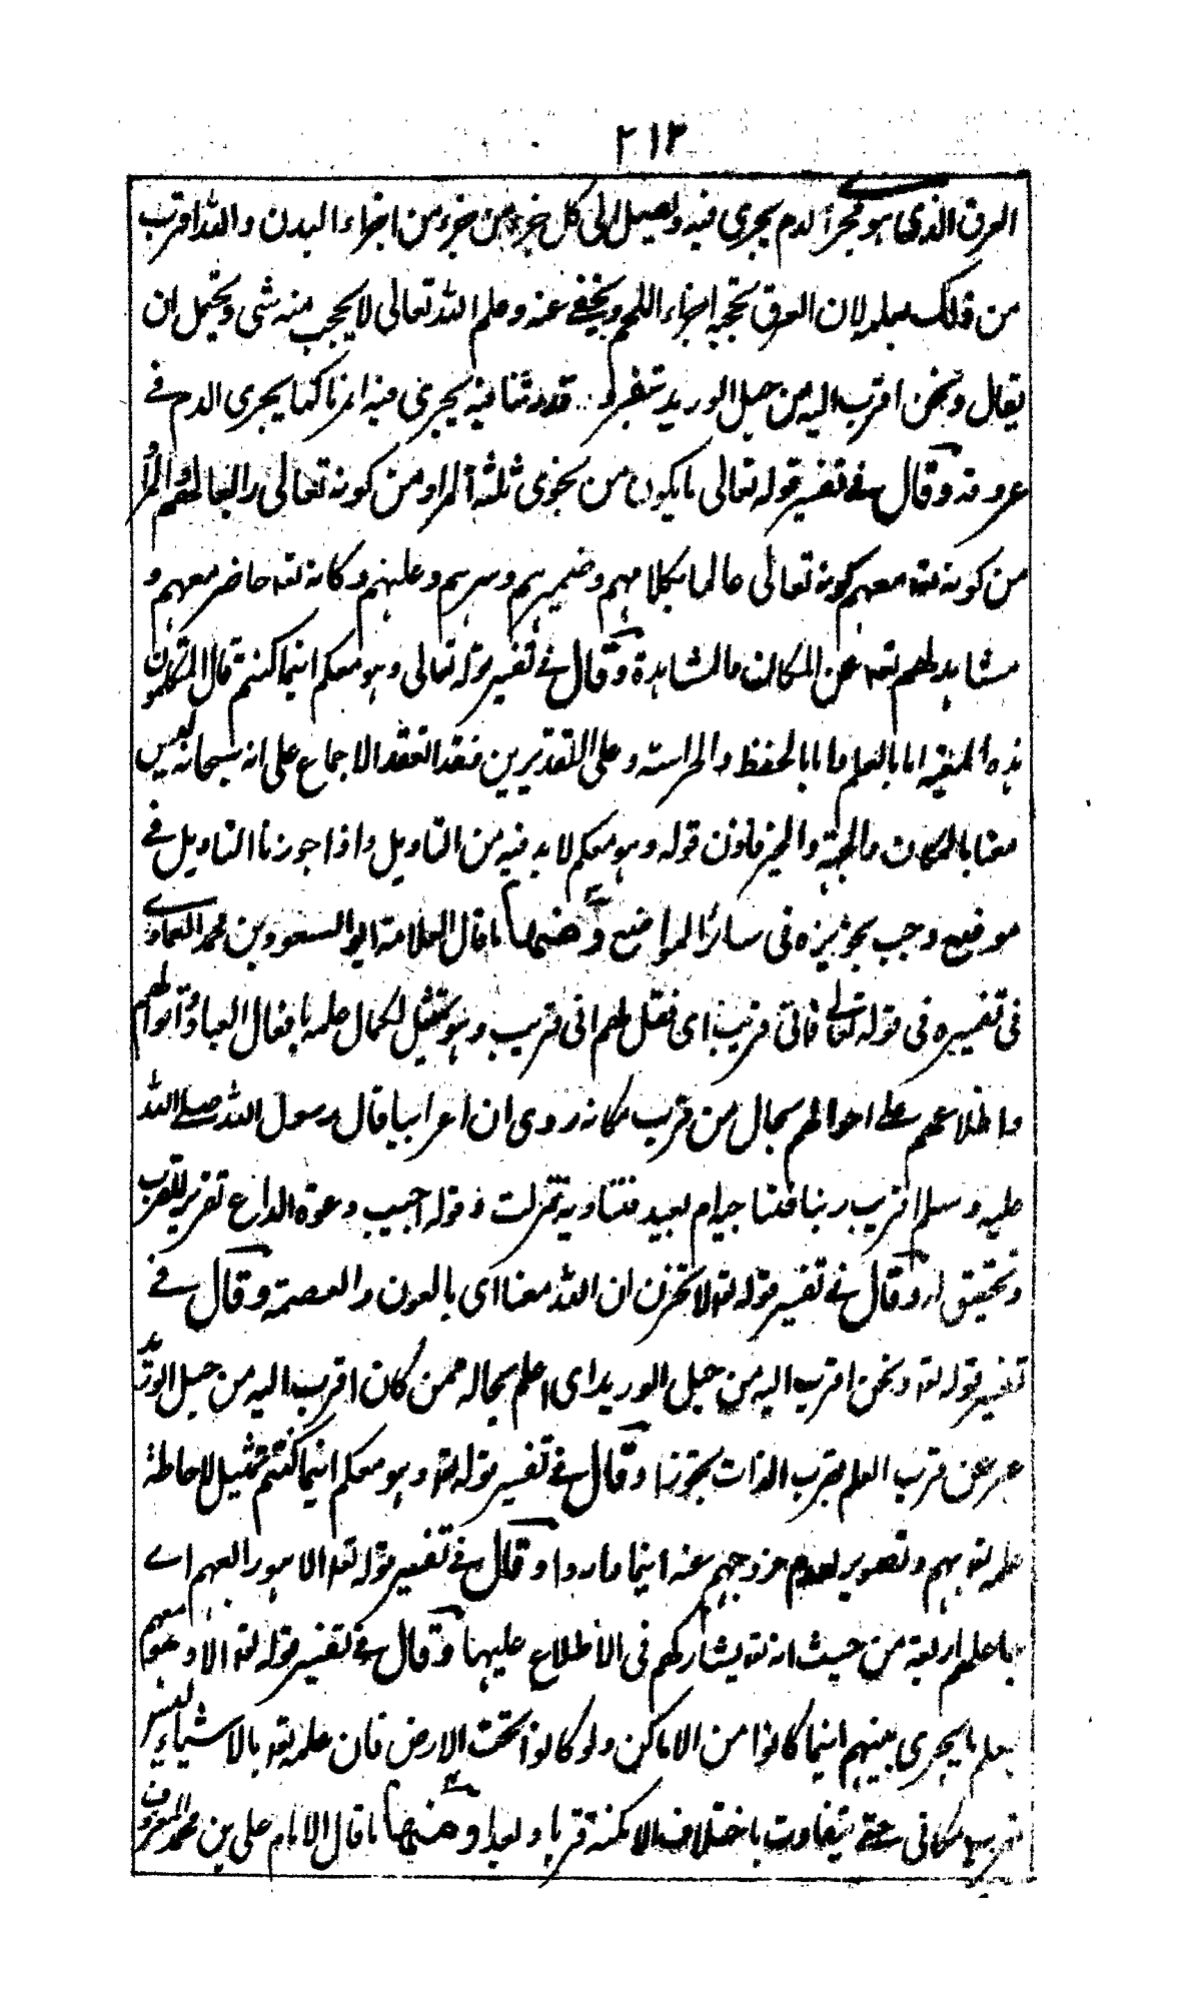 ٢١٣
العرق الذى هو مجرى الدم يجرى فيه ويصل الى كل جزء من جزء من اجزاء البدن والله اقرب
من ذلك بعلمه لان العرق تحجبه اجزاء اللحم ويخفے عنه وعلم الله تعالى لا يحجب منه شى ويحتمل ان
يقال ونحن اقرب اليه من حبل الوريد بتفرد قدرتنا فيه يجرى فيه امرنا كما يجرى الدم فے
عروقه وقال فے تفسير قوله تعالى ما يكون من نجوى ثلثة المراد من كونه تعالى رابعا لهم والمراد
من كونه تعه معهم كونه تعالى عالما بكلامهم وضميرهم وسرهم وعلنهم وكانه تعه حاضر معهم و
مشاهد لهم تعه عن المكان والمشاهدة وقال فے تفسير قوله تعالى وهو معكم اينما كنتم قال المتكلمون
هذه المعية اما بالعلم واما بالحفظ والحراسة وعلى التقديرين فقد انعقد الاجماع على انه سبحانه ليس
معنا بالمكان والجهة والحيز فاذن قوله وهو معكم لا بد فيه من التاويل واذا جوزنا التاويل فے
موضع وجب تجويزه فى سائر المواضع ومنها ما قال العلامة ابو السعود بن محمد العمادے
فى تفسيره فى قوله تعالے فانى قريب اى فقل لهم انى قريب وهو تمثيل لكمال علمه بافعال العباد واقوالهم
واطلاعهم علے احوالهم بحال من قرب مكانه روى ان اعرابيا قال لرسول الله صلے الله
عليه وسلم اقريب ربنا فنناجيه ام بعيد فنناديه فنزلت وقوله اجيب دعوة الداع تقرير للقرب
وتحقيق له وقال فے تفسير قوله تعه لا تحزن ان الله معنا اى بالعون والعصمة وقال فے
تفسير قوله تعه ونحن اقرب اليه من حبل الوريد اى اعلم بحاله ممن كان اقرب اليه من حبل الوريد
عبر عن قرب العلم بقرب الذات تجوزا وقال فے تفسير قوله تعه وهو معكم اينما كنتم تمثيل لاحاطة
علمه تعه بهم وتصوير لعدم خروجهم عنه اينما داروا وقال فے تفسير قوله تعه الا هو رابعهم اے
جاعلهم اربعة من حيث انه تعه يشاركهم فى الاطلاع عليها وقال فے تفسير قوله تعه الا وهو معهم
يعلم ما يجرى بينهم اينما كانوا من الاماكن ولو كانوا تحت الارض فان علمه تعه بالاشياء ليس
لقرب مكانى حتے يتفاوت باختلاف الامكنة قربا وبعدا ومنها ما قال الامام على بن محمد المعروف